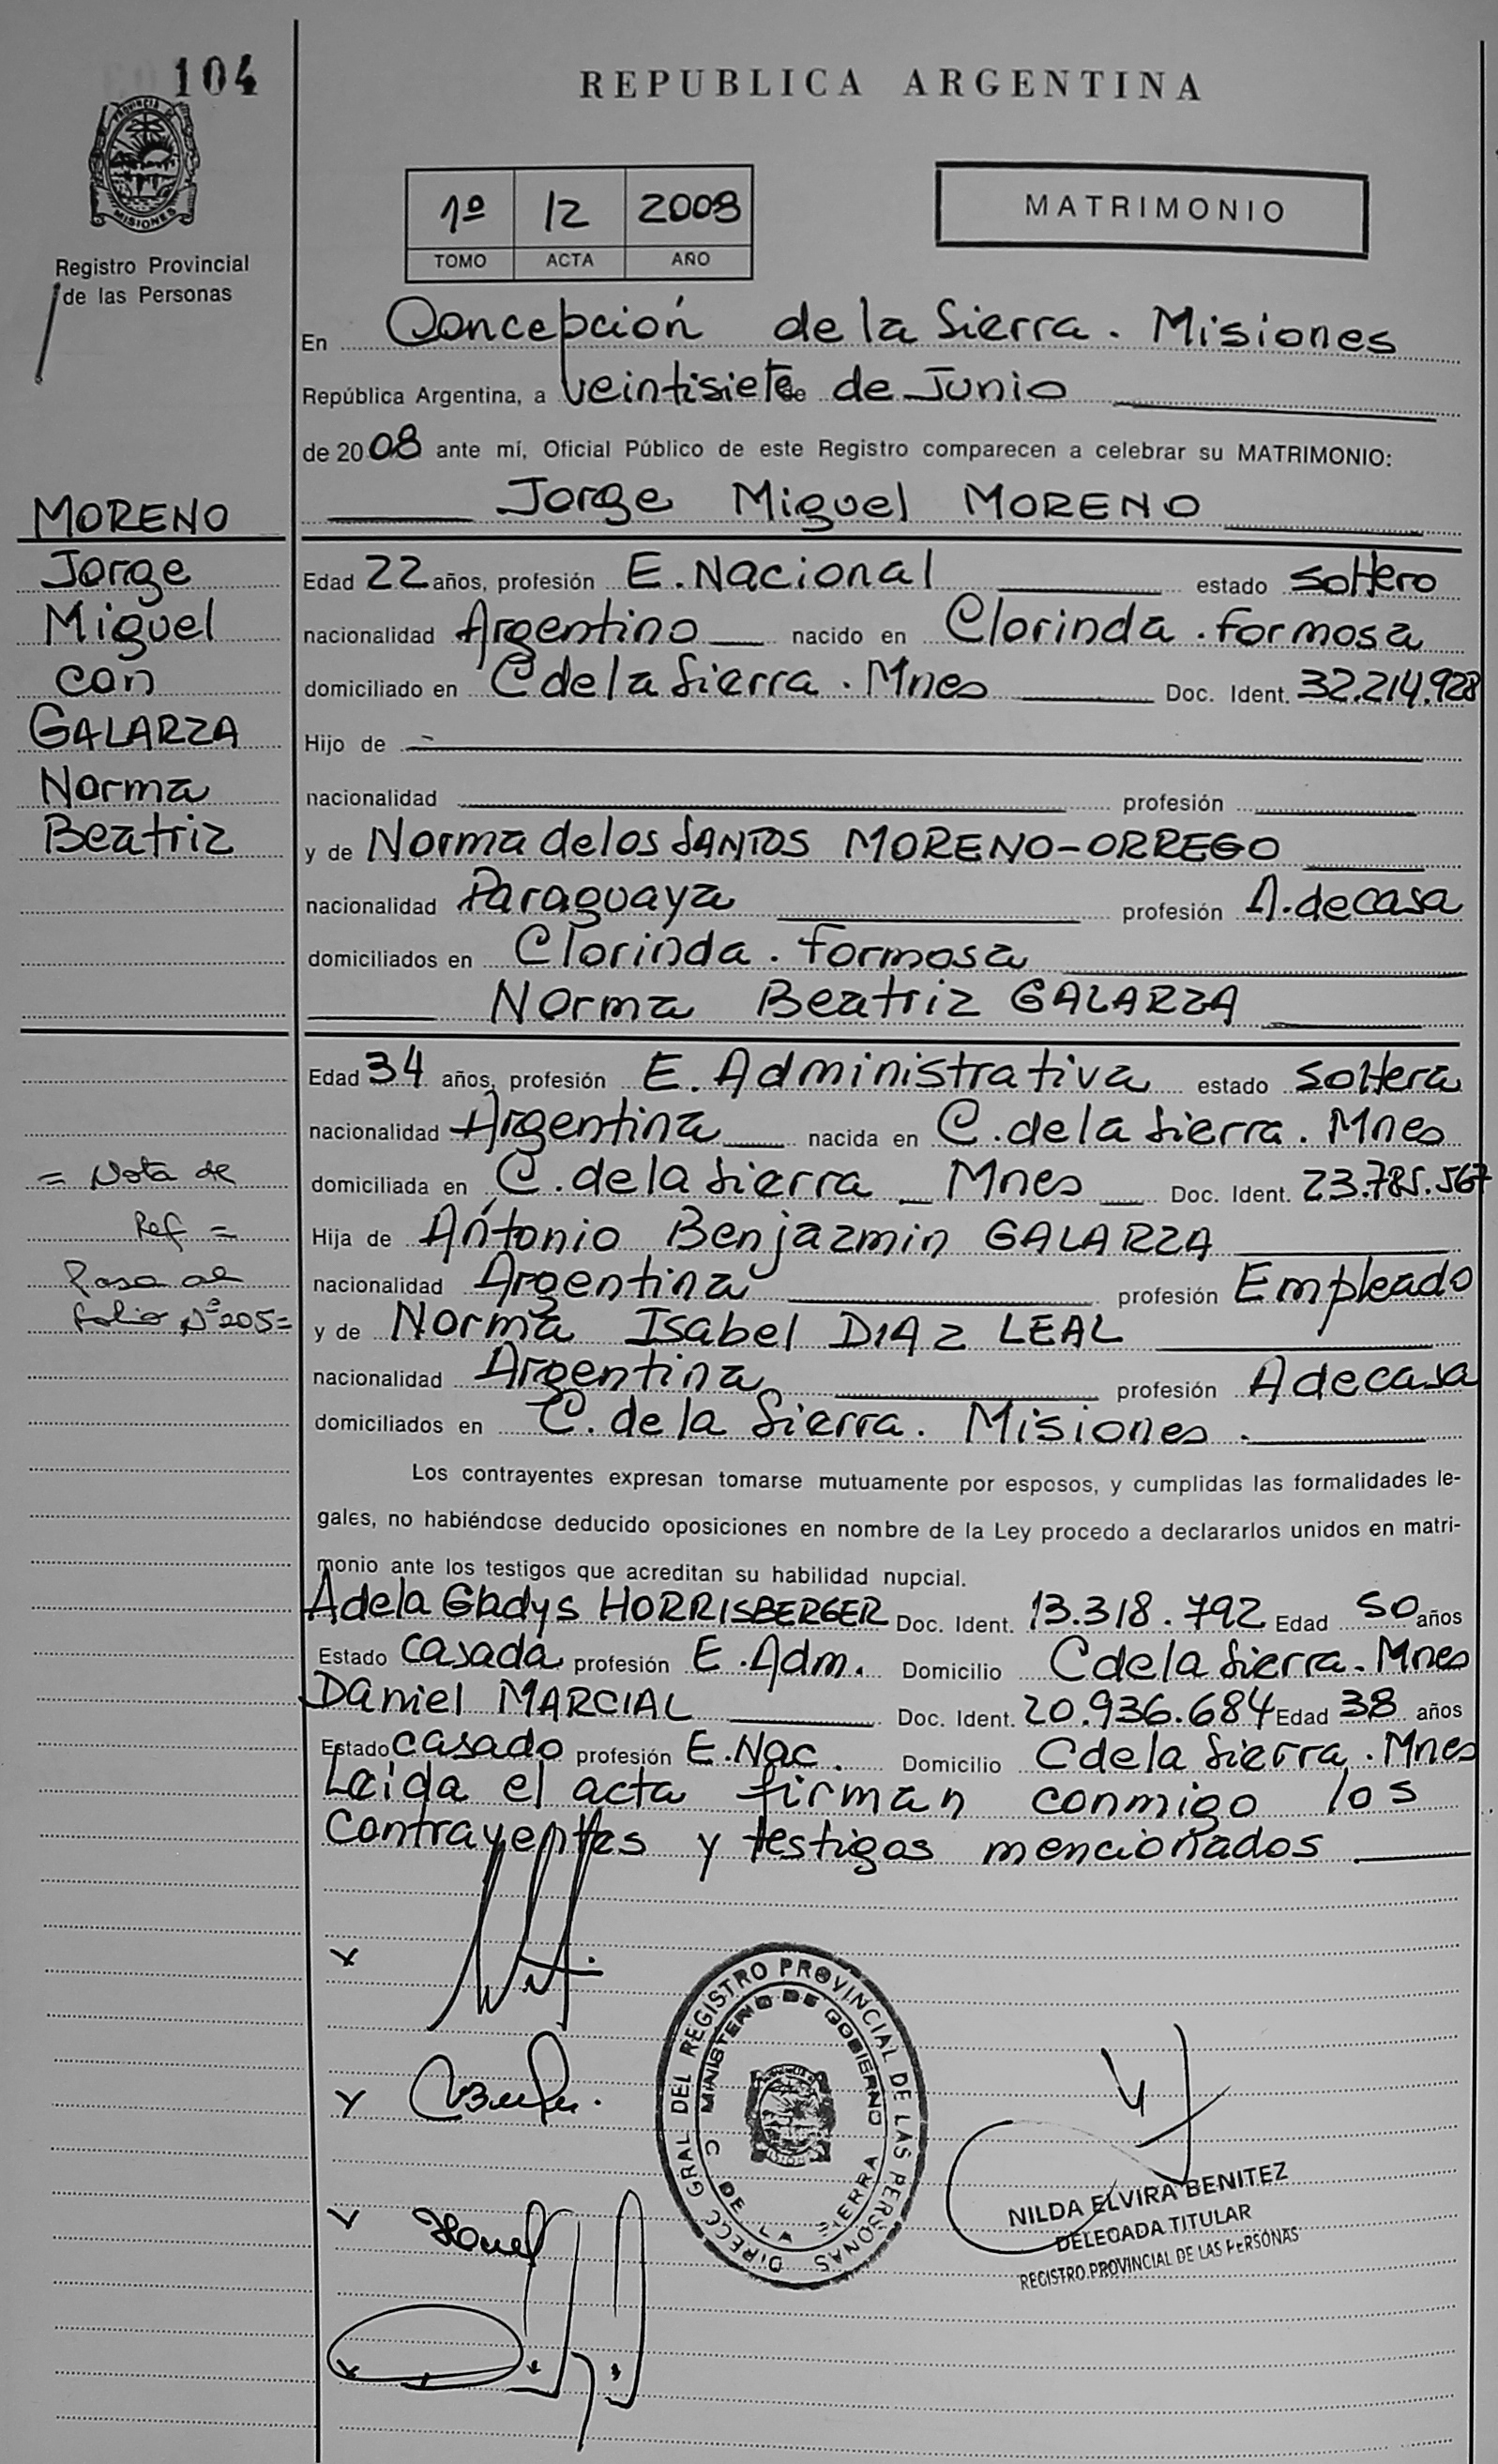 104
REPUBLICA ARGENTINA
PROVINCIA DE
MISIONES
1º 12 2008
TOMO ACTA AÑO
MATRIMONIO
Registro Provincial
de las Personas
En Concepción de la Sierra. Misiones
República Argentina, a veintisiete de de Junio
de 2008 ante mí, Oficial Público de este Registro comparecen a celebrar su MATRIMONIO:
Jorge Miguel MORENO
MORENO
Jorge
Miguel
con
GALARZA
Norma
Beatriz
Edad 22 años, profesión E. Nacional estado soltero
nacionalidad Argentino nacido en Clorinda. formosa
domiciliado en C de la Sierra. Mnes Doc. Ident. 32.214.928
Hijo de
nacionalidad profesión
y de Norma de los SANTOS MORENO-ORREGO
nacionalidad Paraguaya profesión A. de casa
domiciliados en Clorinda. formosa
Norma Beatriz GALARZA
Edad 34 años, profesión E. Administrativa estado soltera
nacionalidad Argentina nacida en C. de la Sierra. Mnes
domiciliada en C. de la Sierra _ Mnes Doc. Ident. 23.785.567
Hija de Antonio Benjazmin GALARZA
nacionalidad Argentina profesión Empleado
y de Norma Isabel DIAZ LEAL
nacionalidad Argentina profesión A de casa
domiciliados en C. de la Sierra. Misiones.
= Nota de
Ref =
Pasa al
folio Nº 205=
Los contrayentes expresan tomarse mutuamente por esposos, y cumplidas las formalidades le-
gales, no habiéndose deducido oposiciones en nombre de la Ley procedo a declararlos unidos en matri-
monio ante los testigos que acreditan su habilidad nupcial.
Adela Gladys HORRISBERGER Doc. Ident. 13.318.792 Edad 50 años
Estado Casada profesión E. Adm. Domicilio C de la Sierra. Mnes
Daniel MARCIAL Doc. Ident. 20.936.684 Edad 38 años
Estado casado profesión E. Nac. Domicilio C de la Sierra. Mnes
Leida el acta firman conmigo los
Contrayentes y testigos mencionados
DIRECC GRAL DEL REGISTRO PROVINCIAL DE LAS PERSONAS
MINISTERIO DE GOBIERNO
C DE LA SIERRA
NILDA ELVIRA BENITEZ
DELEGADA TITULAR
REGISTRO PROVINCIAL DE LAS PERSONAS